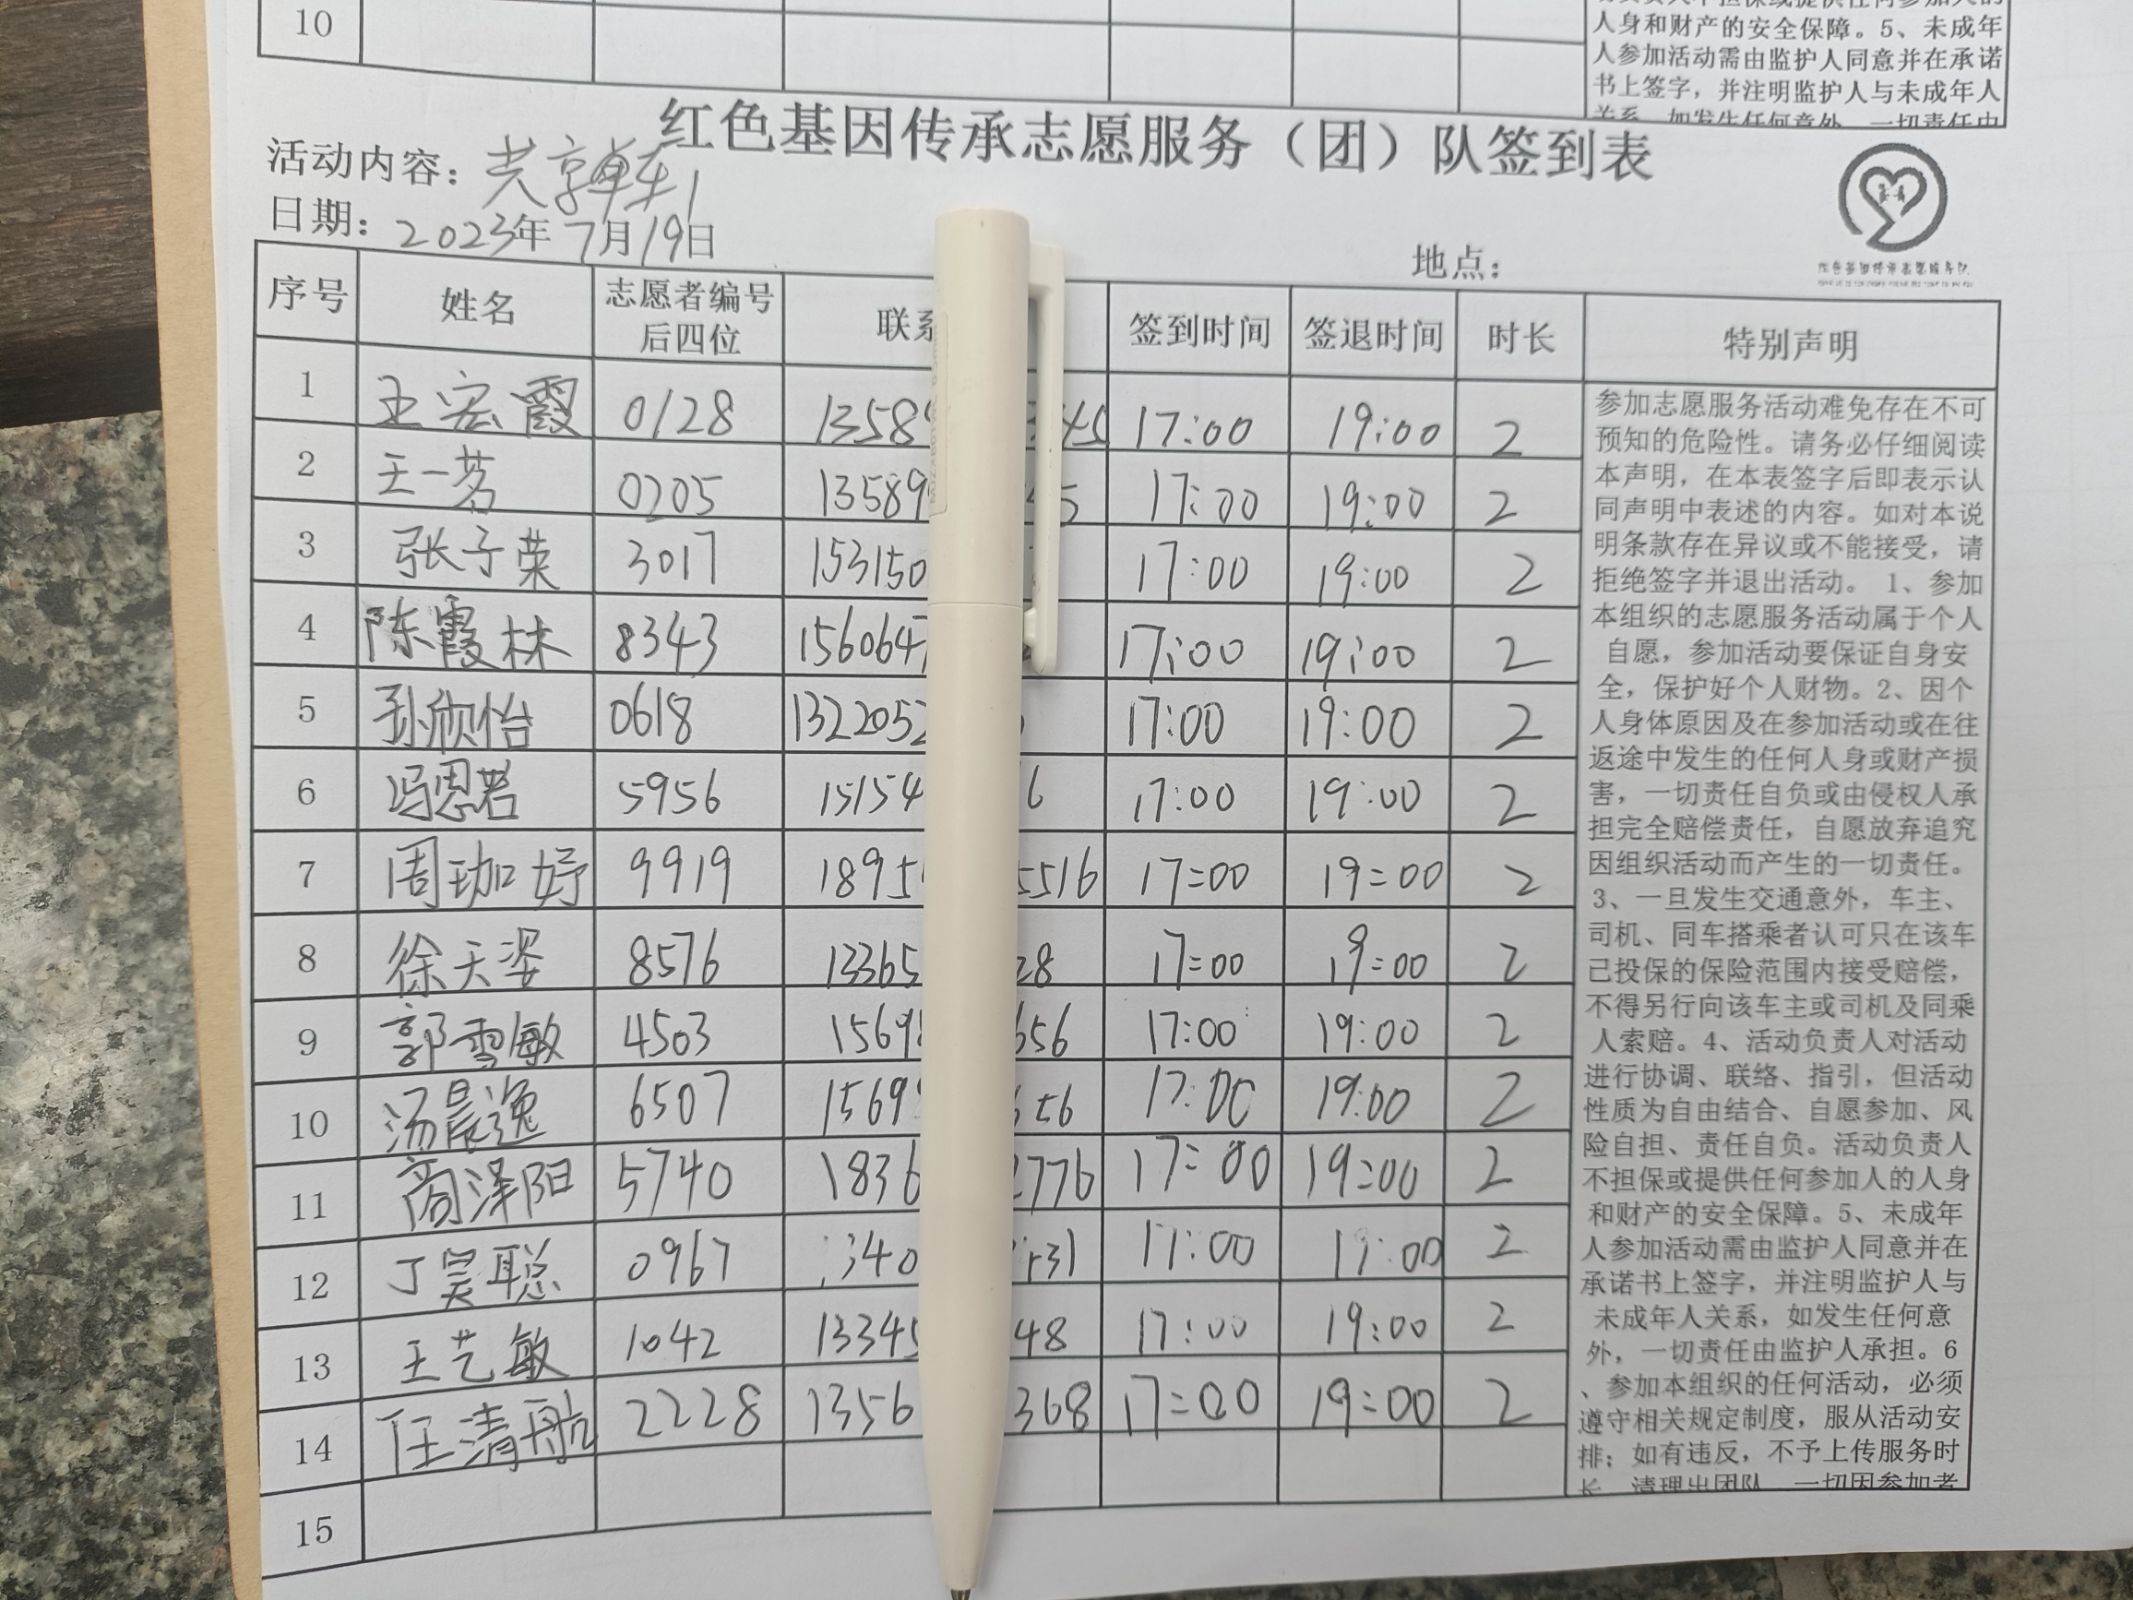 10
人身和财产的安全保障。5、未成年
人参加活动需由监护人同意并在承诺
书上签字，并注明监护人与未成年人
关系，如发生任何意外，一切责任由
红色基因传承志愿服务（团）队签到表
活动内容：共享单车1
日期：2023年7月19日
地点：
序号 姓名 志愿者编号后四位 联系 签到时间 签退时间 时长 特别声明
1 王宏霞 0128 1358 45 17:00 19:00 2
2 王一茗 0205 13589 5 17:00 19:00 2
3 张子荣 3017 153150 17:00 19:00 2
4 陈霞林 8343 1560647 17:00 19:00 2
5 孙欣怡 0618 1322052 17:00 19:00 2
6 冯恩若 5956 15154 6 17:00 19:00 2
7 周珈妤 9919 1895 5516 17:00 19:00 2
8 徐天姿 8576 13365 28 17:00 19:00 2
9 郭雪敏 4503 1569 656 17:00 19:00 2
10 汤晨逸 6507 1569 656 17:00 19:00 2
11 商泽阳 5740 1836 2776 17:00 19:00 2
12 丁昊聪 0967 340 31 17:00 19:00 2
13 王艺敏 1042 13345 48 17:00 19:00 2
14 任清航 2228 1356 368 17:00 19:00 2
15
参加志愿服务活动难免存在不可
预知的危险性。请务必仔细阅读
本声明，在本表签字后即表示认
同声明中表述的内容。如对本说
明条款存在异议或不能接受，请
拒绝签字并退出活动。 1、参加
本组织的志愿服务活动属于个人
自愿，参加活动要保证自身安
全，保护好个人财物。2、因个
人身体原因及在参加活动或在往
返途中发生的任何人身或财产损
害，一切责任自负或由侵权人承
担完全赔偿责任，自愿放弃追究
因组织活动而产生的一切责任。
3、一旦发生交通意外，车主、
司机、同车搭乘者认可只在该车
已投保的保险范围内接受赔偿，
不得另行向该车主或司机及同乘
人索赔。4、活动负责人对活动
进行协调、联络、指引，但活动
性质为自由结合、自愿参加、风
险自担、责任自负。活动负责人
不担保或提供任何参加人的人身
和财产的安全保障。5、未成年
人参加活动需由监护人同意并在
承诺书上签字，并注明监护人与
未成年人关系，如发生任何意
外，一切责任由监护人承担。6
、参加本组织的任何活动，必须
遵守相关规定制度，服从活动安
排；如有违反，不予上传服务时
长，清理出团队，一切因参加者